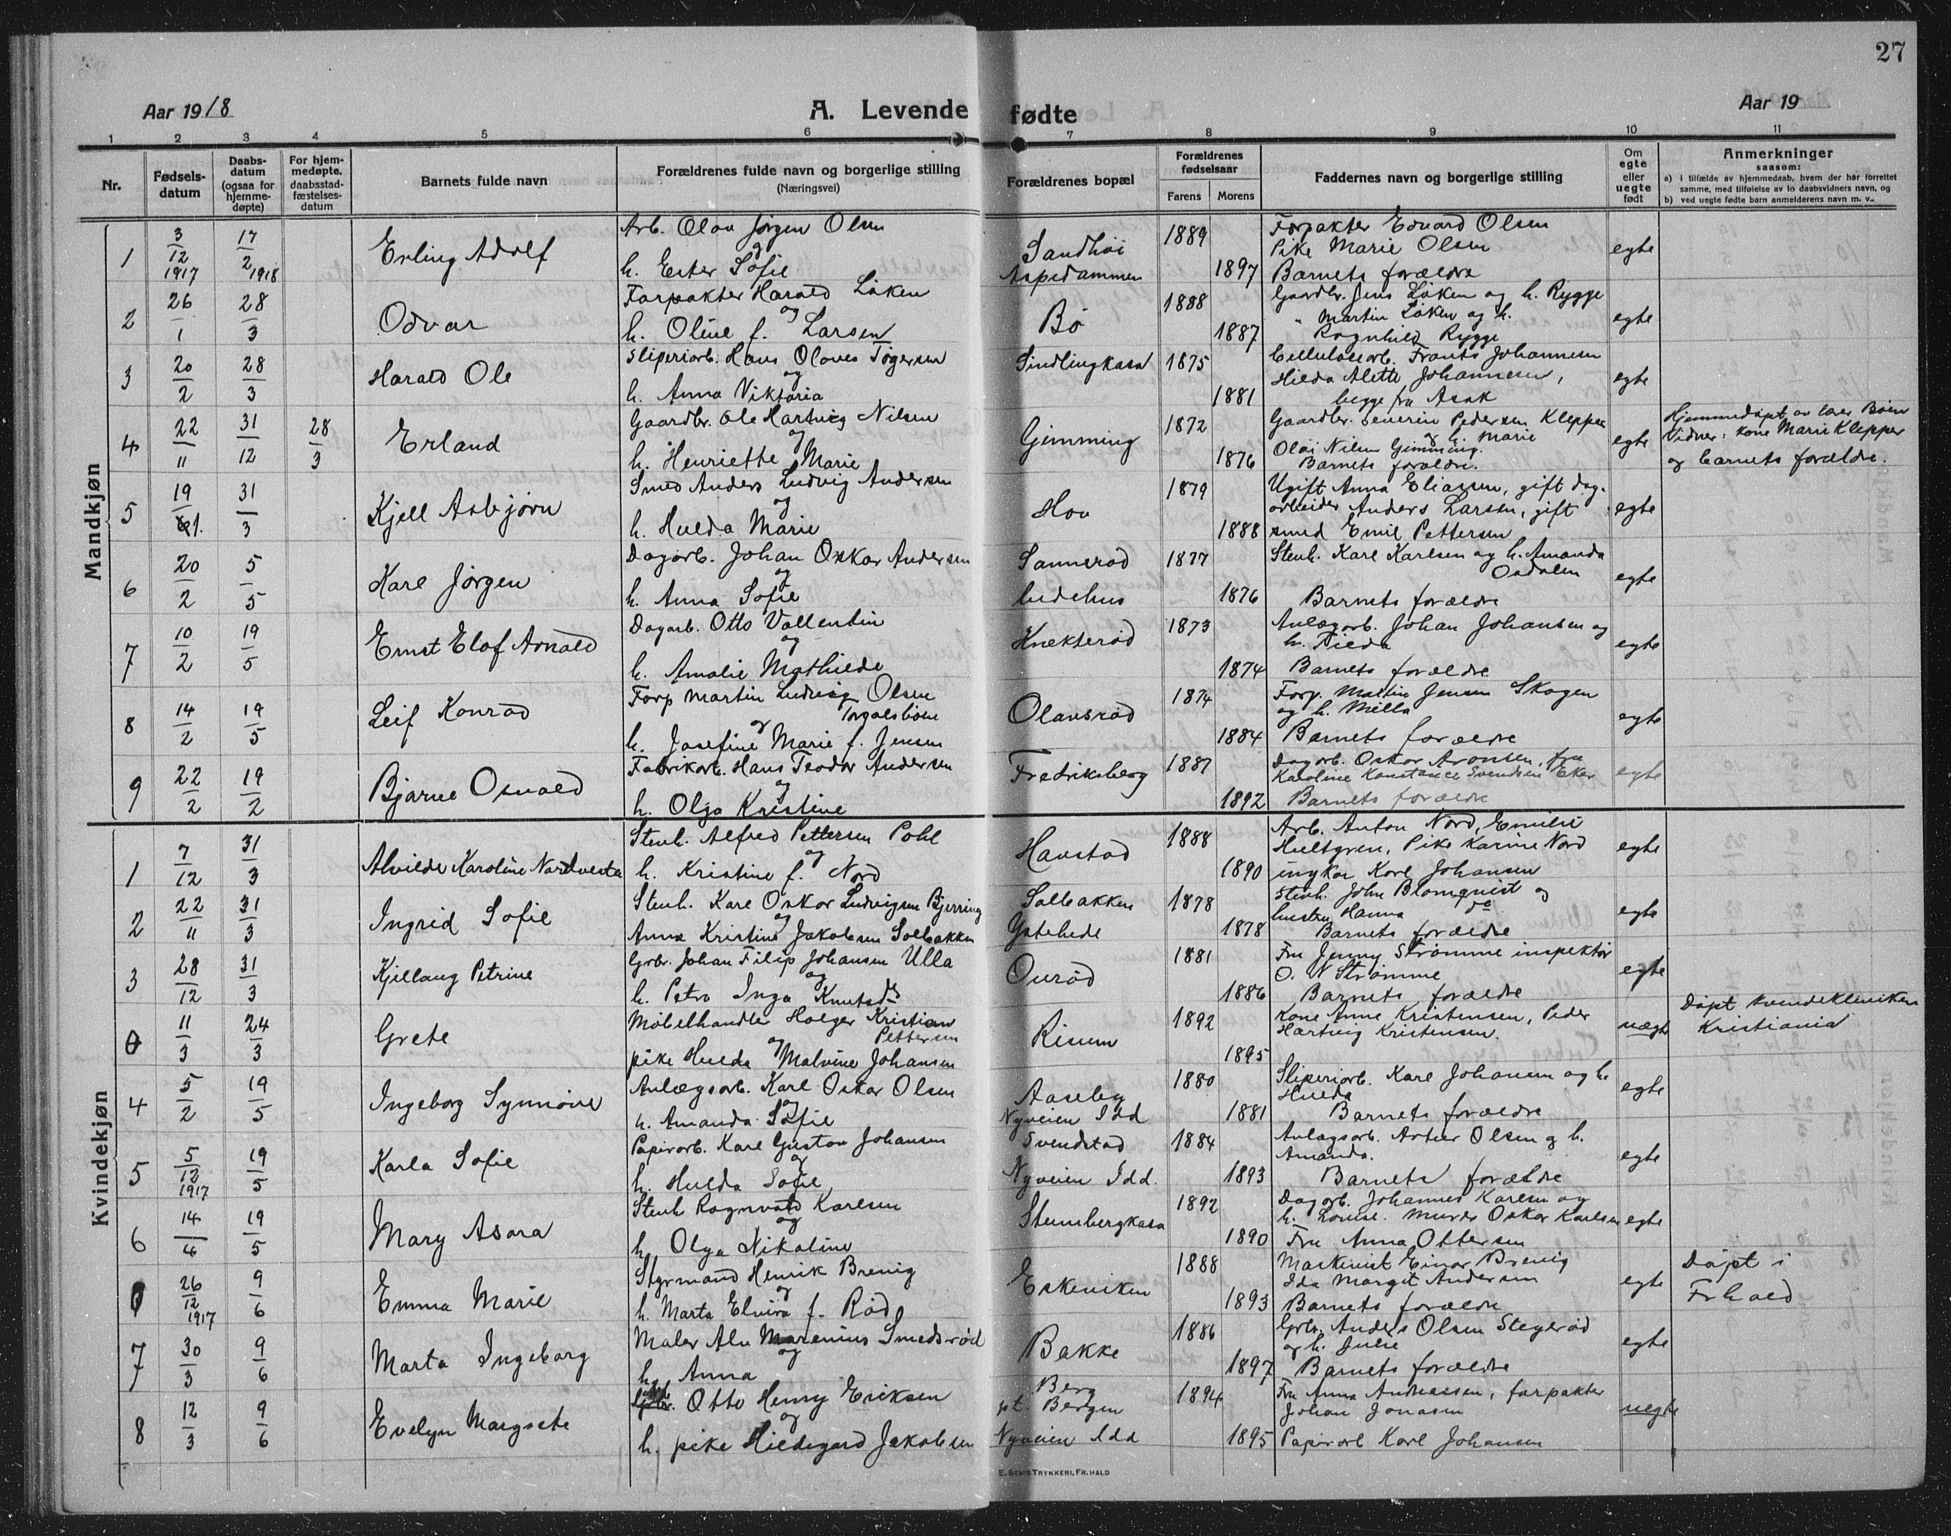 27
Aar 1918
A. Levende fødte
Aar 19
1 2 3 4 5 6 7 8 9 10 11
Nr.
Fødsels-
datum
Daabs-
datum
(ogsaa for
hjemme-
døpte)
For hjem-
medøpte,
daabsstad-
fæstelses-
datum
Barnets fulde navn
Forældrenes fulde navn og borgerlige stilling
(Næringsvei)
Forældrenes bopæl
Forældrenes
fødselsaar
Farens Morens
Faddernes navn og borgerlige stilling
Om
egte
eller
uegte
født
Anmerkninger
saasom:
a) i tilfælde av hjemmedaab, hvem der har forrettet
samme, med tilføielse av to daabsvidners navn, og
b) ved uegte fødte barn anmelderens navn m. v..
Mandkjøn
1 3/12 1917 17/2 1918 Erling Adolf
Arb. Olav Jørgen Olsen
og
h. Ester Sofie
Sandhöi
Aspedammen
1889
1897
Forpakter Edvard Olsen
Pike Marie Olsen
Barnets forældre
egte
2 26/1 28/3 Odvar
Forpakter Harald Løken
og
h. Oline f. Larsen
Bö
1888
1887
Gaardbr. Jens Løken og h. Rygge
" Martin Løken og h.
Ragnhild Rygge
egte
3 20/2 28/3 Harald Ole
Sliperiarb. Hans Olaves Tøgersen
og
h. Anna Viktoria
Sindlingkasa
1875
1881
Cellulosearb. Frants Johannesen
Hilda Alette Johannesen,
begge fra Asak
egte
4 22/11 31/12 28/3 Erland
Gaardbr. Ole Hartvig Nilsen
og
h. Henriette Marie
Gimming
1872
1876
Gaardbr. Severin Pedersen Klepper
og h. Marie
Olai Nilsen Gimming.
Barnets forældre.
egte
Hjemmedøpt av lærer Böen
Vidner: kone Marie Klepper
og barnets forældre.
5 19/1. 31/3 Kjell Asbjørn
Smed Anders Ludvig Andersen
og
h. Hulda Marie
Hov
1879
1888
Ugift Anna Eliassen, gift dag-
arbeider Anders Larsen, gift
smed Emil Pettersen
egte
6 20/2 5/5 Karl Jørgen
Dagarb. Johan Oskar Andersen
og
h. Anna Sofie
Sannerød
ludehus
1877
1876
Stenh. Karl Karlsen og h. Amanda
Osdalen
Barnets forældre
egte
7 10/2 19/5 Ernst Elof Arnald
Dagarb. Otto Vallentin
og
h. Amalie Mathilde
Knekterød
1873
1874
Anlægarb. Johan Johansen og
h. Tilda
Barnets forældre
egte
8 14/2 19/5 Leif Konrad
Forp Martin Ludvig Olsen
Torgalsbøen
og
h. Josefine Marie f. Jensen
Olavsrød
1874
1884
Forp. Martin Jensen Skogen
og h. Milla
Barnets forældre
egte
9 22/2 19/2 Bjarne Osvald
Fabrikarb. Hans Teodor Andersen
og
h. Olga Kristine
Fredriksberg
1887
1892
Dagarb. Oskar Aronsen, fru
Karoline Konstance Svendsen Eker
Barnets forældre
egte
Kvindekjøn
1 7/12 31/3 Alvilde Karoline Nordvesta
Stenh. Alfred Pettersen Pohl
og
h. Kristine f. Nord
Havstad
1888
1890
Arb. Anton Nord, Emilie
Hultgren, Pike Karine Nord
ungkar Karl Johansen
egte
2 22/11 31/3 Ingrid Sofie
Stenh. Karl Oskar Ludvigsen Bjerring
og
Anna Kristine Jakobsen Solbakken
Solbakken
Ystehede
1878
1878
Stenh. John Blomqvist og
hustru Hanna do
Barnets forældre
egte
3 28/12 31/3 Kjellaug Petrine
Grb. Johan Filip Johansen Ulla
og
h. Petra Inga Knutsd.
Ourød
1881
1886
Fru Jenny Strømme inspektør
O. N Strömme
Barnets forældre
egte
0 11/3 24/3 Grete
Møbelhandler Holger Kristian
Pettersen
og
pike Hulda Malvine Johansen
Risum
1892
1895
Kone Anne Kristensen, Peder
Hartvig Kristensen.
uegte
Døpt kvindekliniken
Kristiania
4 5/2 19/5 Ingeborg Synnöve
Anlægsarb. Karl Oskar Olsen
og
h. Amanda Sofie
Aaseby
Nyveien Idd
1880
1881
Sliperiarb. Karl Johansen og h.
Hulda
Barnets forældre
egte
5 5/12 1917 19/5 Karla Sofie
Papirarb. Karl Gustav Johansen
og
h. Hulda Sofie
Svendstad
Nyveien Idd.
1884
1893
Anlægsarb. Artur Olsen og h.
Amanda.
Barnets forældre
egte
6 14/4 19/5 Mary Asora
Stenh Ragnvald Karlsen
og
h. Olga Nikoline
Stumbergkasa
1892
1890
Dagarb. Johannes Karlsen og
h. Lovise. Murer Oskar Karlsen
Fru Anna Ottersen
egte
0 26/12 1917 9/6 Emma Marie
Styrmand Henrik Brenig
og
h. Marta Elvira f. Rød
Eskeviken
1888
1893
Maskinist Einar Brenig
Ida Margit Andersen
Barnets forældre
egte
Døpt i
Frhald
7 30/3 9/6 Marta Ingeborg
Maler Alv Marenius Smedsrød
og
h. Anna
Bakke
1886
1897
Grb. Anders Olsen Stegerød
og h. Julie
Barnets forældre
egte
8 12/3 9/6 Evelyn Margrete
Otto Henry Eriksen
og
h. pike Hildegard Jakobsen
Berg
pt. Bergen
Nyveien Idd
1894
1895
Fru Anna Andreassen, forpakter
Johan Jonasen
Papirarb Karl Johansen
uegte
E. Sem's Trykkeri, Fr.hald